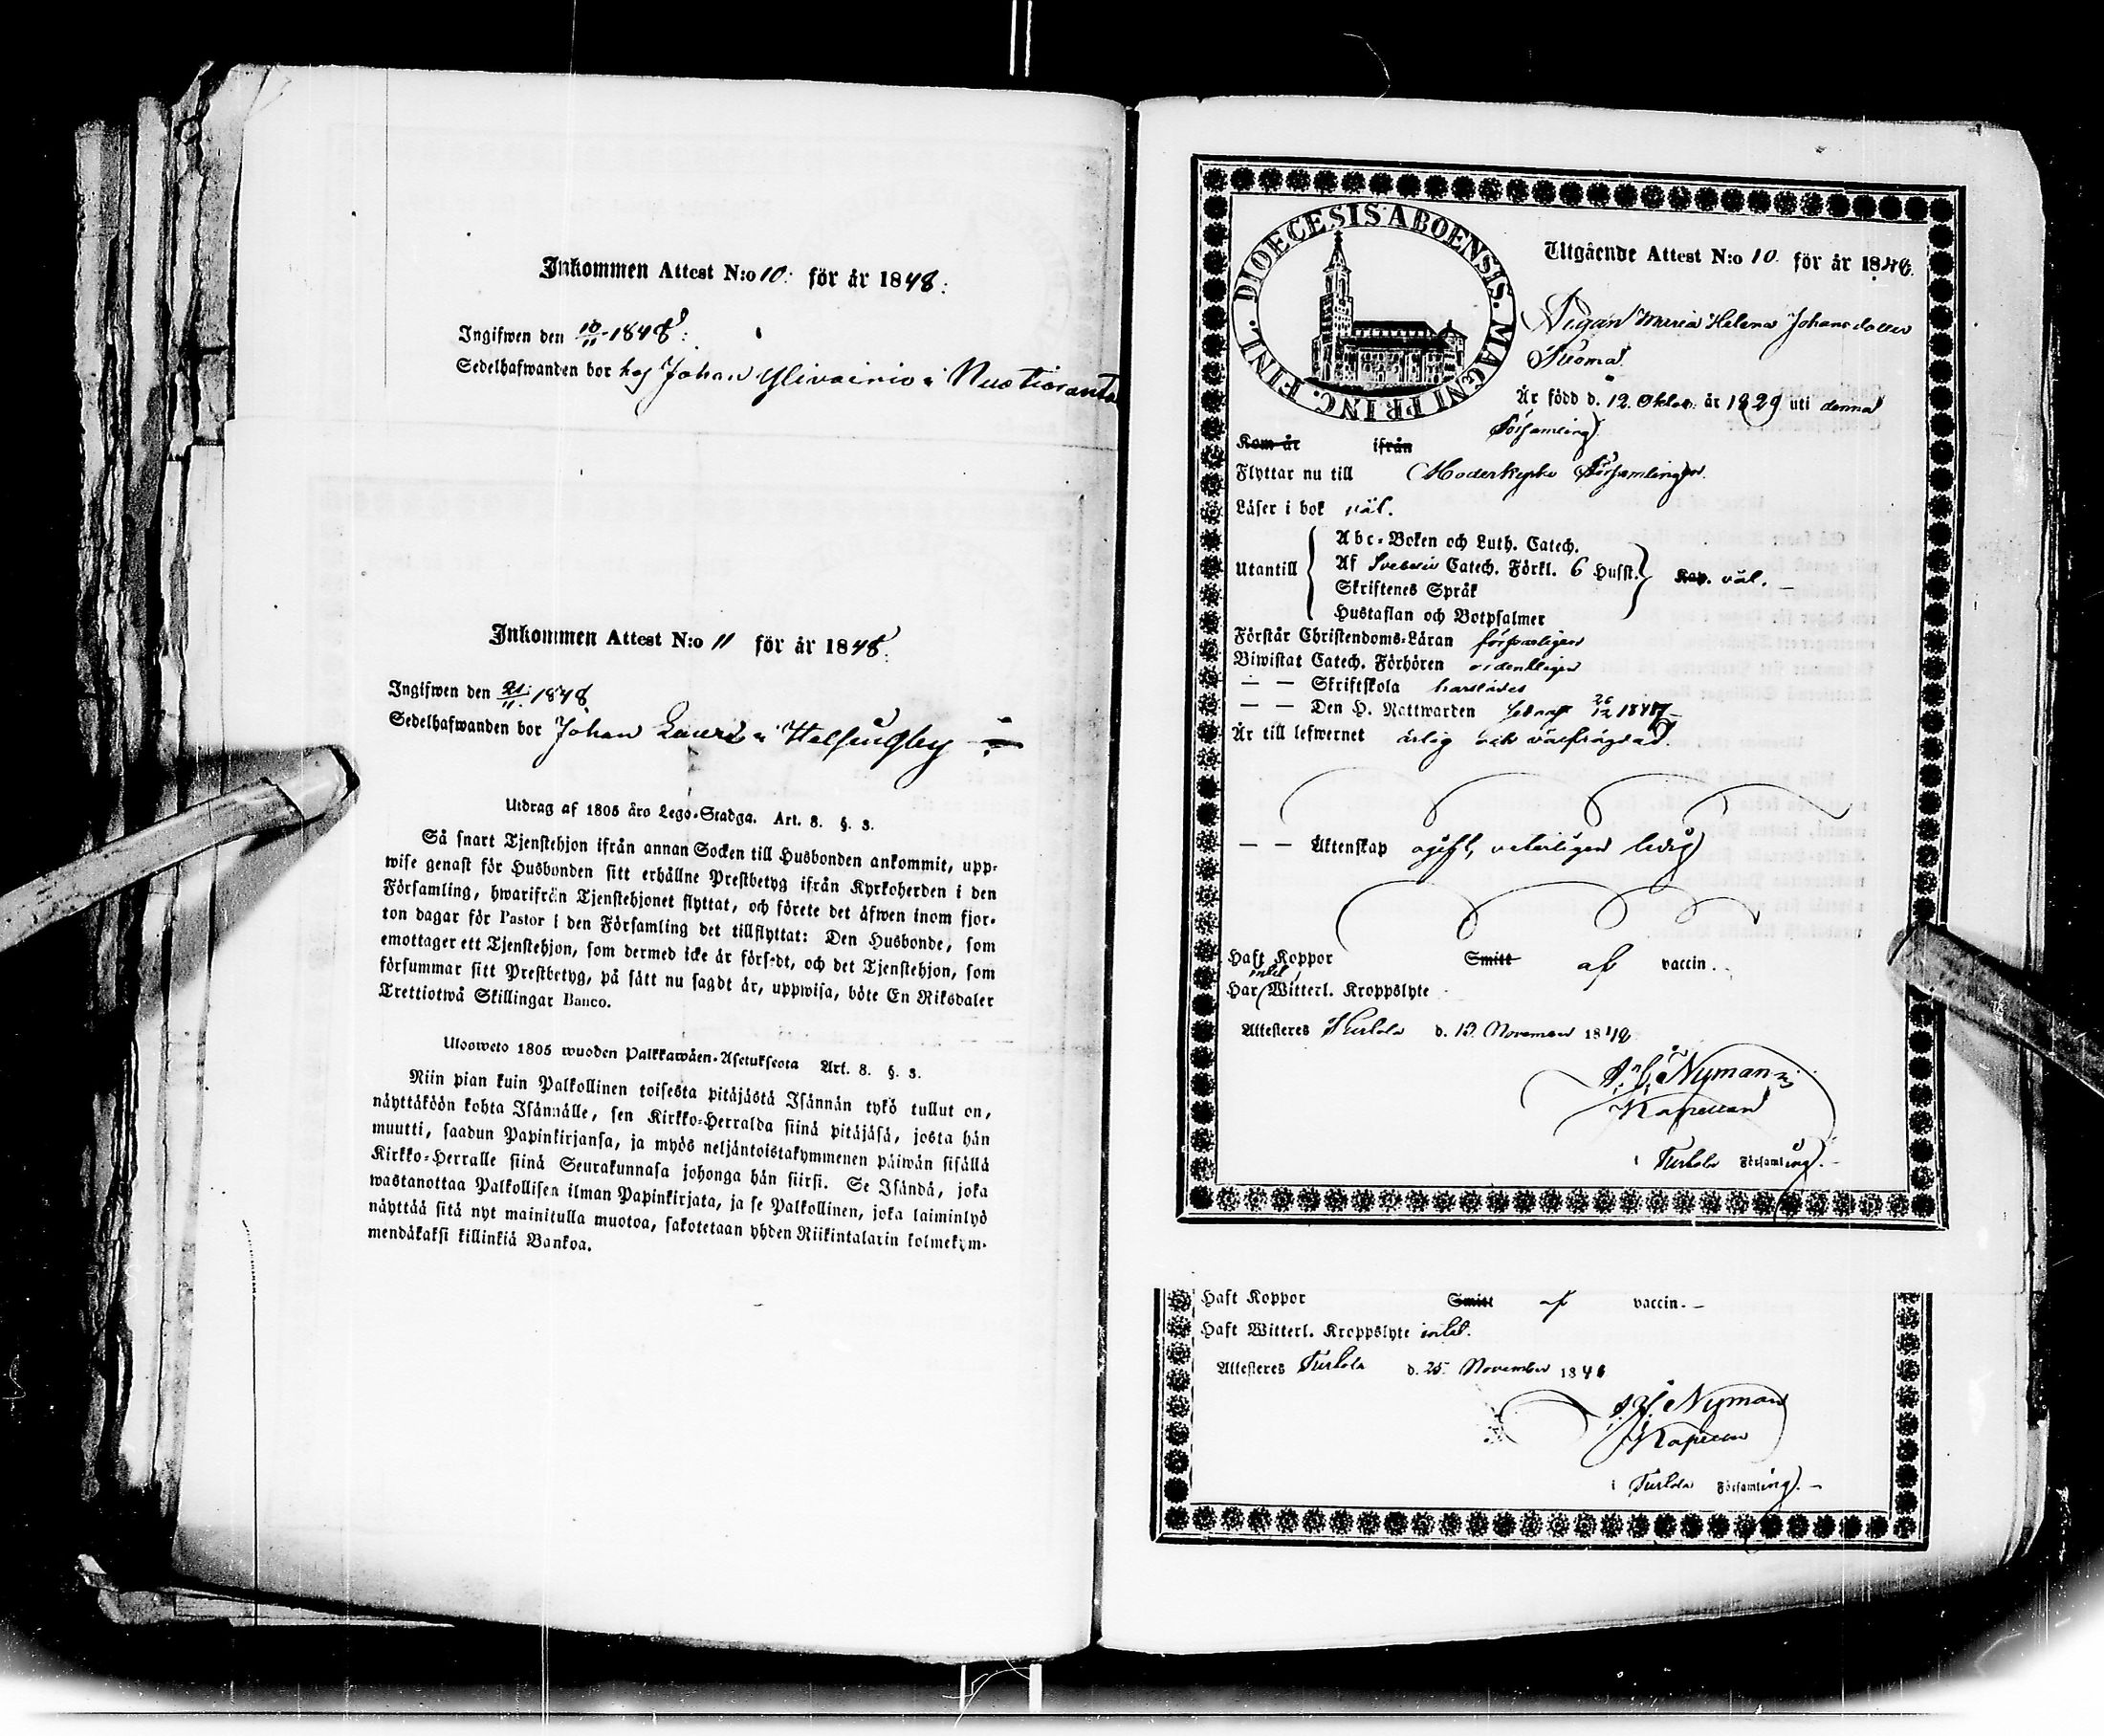 Inkommen Attest N:o 10: för år 1848:
Ingifwen den 10/11 1848:
Sedelhafwanden bor hos Johan Ylivainio i Nuotioranta
Inkommen Attest N:o 11 för år 1848:
Ingifwen den 1848
Sedelhafwanden bor Johan Lauri i Helsingby
Utdrag af 1805 års Lego-Stadga. Art. 8. §. 3.
Så snart Tjenstehjon ifrån annan Socken till Husbonden ankommit, upp-
wise genast för Husbonden sitt erhållne Prestbetyg ifrån Kyrkoherden i den
Församling, hwarifrån Tjenstehjonet flyttat, och förete det äfwen inom fjor-
ton dagar för Pastor i den Församling det tillflyttat: Den Husbonde, som
emottager ett Tjenstehjon, som dermed icke är försedt, och det Tjenstehjon, som
försummar sitt Prestbetyg, på sätt nu sagdt är, uppwisa, böte En Riksdaler
Trettiotwå Skillingar Banco.
Ulosweto 1805 wuoden Palkkawäen-Asetuksesta Art. 8. §. 3.
Niin pian kuin Palkollinen toisesta pitäjästä Isännän tykö tullut on,
näyttäköön kohta Isännälle, sen Kirkko-Herralda siinä pitäjäsä, josta hän
muutti, saadun Papinkirjansa, ja myös neljäntoistakymmenen päiwän sisällä
Kirkko-Herralle siinä Seurakunnasa johonga hän siirsi. Se Isändä, joka
wastanottaa Palkollisen ilman Papinkirjata, ja se Palkollinen, joka laiminlyö
näyttää sitä nyt mainitulla muotoa, sakotetaan yhden Riikintalarin kolmekym-
mendäkaksi killinkiä Bankoa.
DIOECESIS ABOENSIS. MAGNI PRINC. FINL.
Utgående Attest N:o 10. för år 1848.
Pigan Maria Helena Johansdotter
Är född d. 12. Oktob. år 1829 uti denna
Församling.
Kom år ifrån
Flyttar nu till Moderkyrko Församlingen.
Läser i bok väl.
Utantill
Abc-Boken och Luth. Catech.
Af Svebelii Catech. Förkl. 6 Husst. Kap. väl.
Skriftenes Språk
Hustaflan och Botpsalmer
Förstår Christendoms-Läran försvarligen
Biwistat Catech. Förhören ordentligen
— — Skriftskola
— — Den H. Nattwarden 26/12 1847
Är till lefwernet ärlig och välfrägdad.
— — Äktenskap ogift, veterligen ledig
Haft Koppor Smitt af vaccin.
Har intet Witterl. Kroppslyte
Attesteres Turtola d. 10 November 1848
Nyman
Kapellan
i Turtola Församling.
Haft Koppor Smitt af vaccin.
Haft Witterl. Kroppslyte intet.
Attesteres Turtola d. 25 November 1848
Nyman
Kapellan
i Turtola Församling.